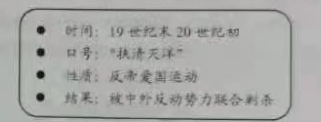 ● 时间：19世纪末20世纪初
● 口号：“扶清灭洋”
● 性质：反帝爱国运动
● 结果：被中外反动势力联合剿杀